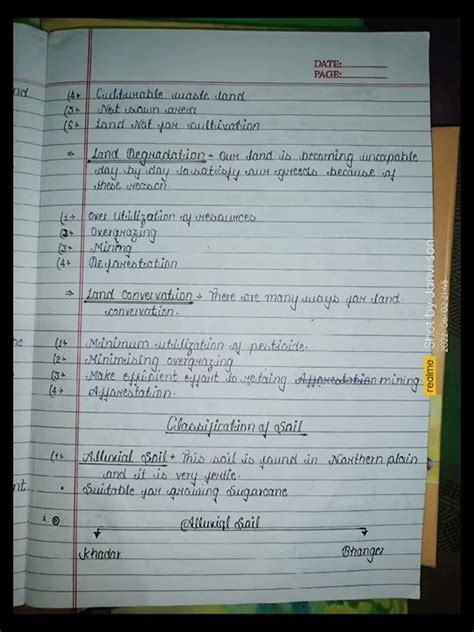 DATE:
PAGE:
nd
(4→ Culturable waste land
(5→ Net sown area
(6→ Land Not for cultivation
⇒ Land Degradation → Our land is becoming uncapable
day by day to satisfy our greeds because of
these reason.
(1→ Over Utilization of resources
(2→ Overgrazing
(3→ Mining
(4→ Deforestration
⇒ Land convervation → There are many ways for land
convervation.
(1→ Minimum utilization of pesticide.
(2→ Minimising overgrazing
(3→ Make efficient effort to mining.
(4→ Afforestation.
Classification of Soil
(1→ Alluvial Soil → This soil is found in Northern plain
and it is very fertie.
nt • Suitable for growing Sugarcane
Alluvial Soil
Khadar Bhanger
realme Shot by Janvi soni
2022/06/02 21:45